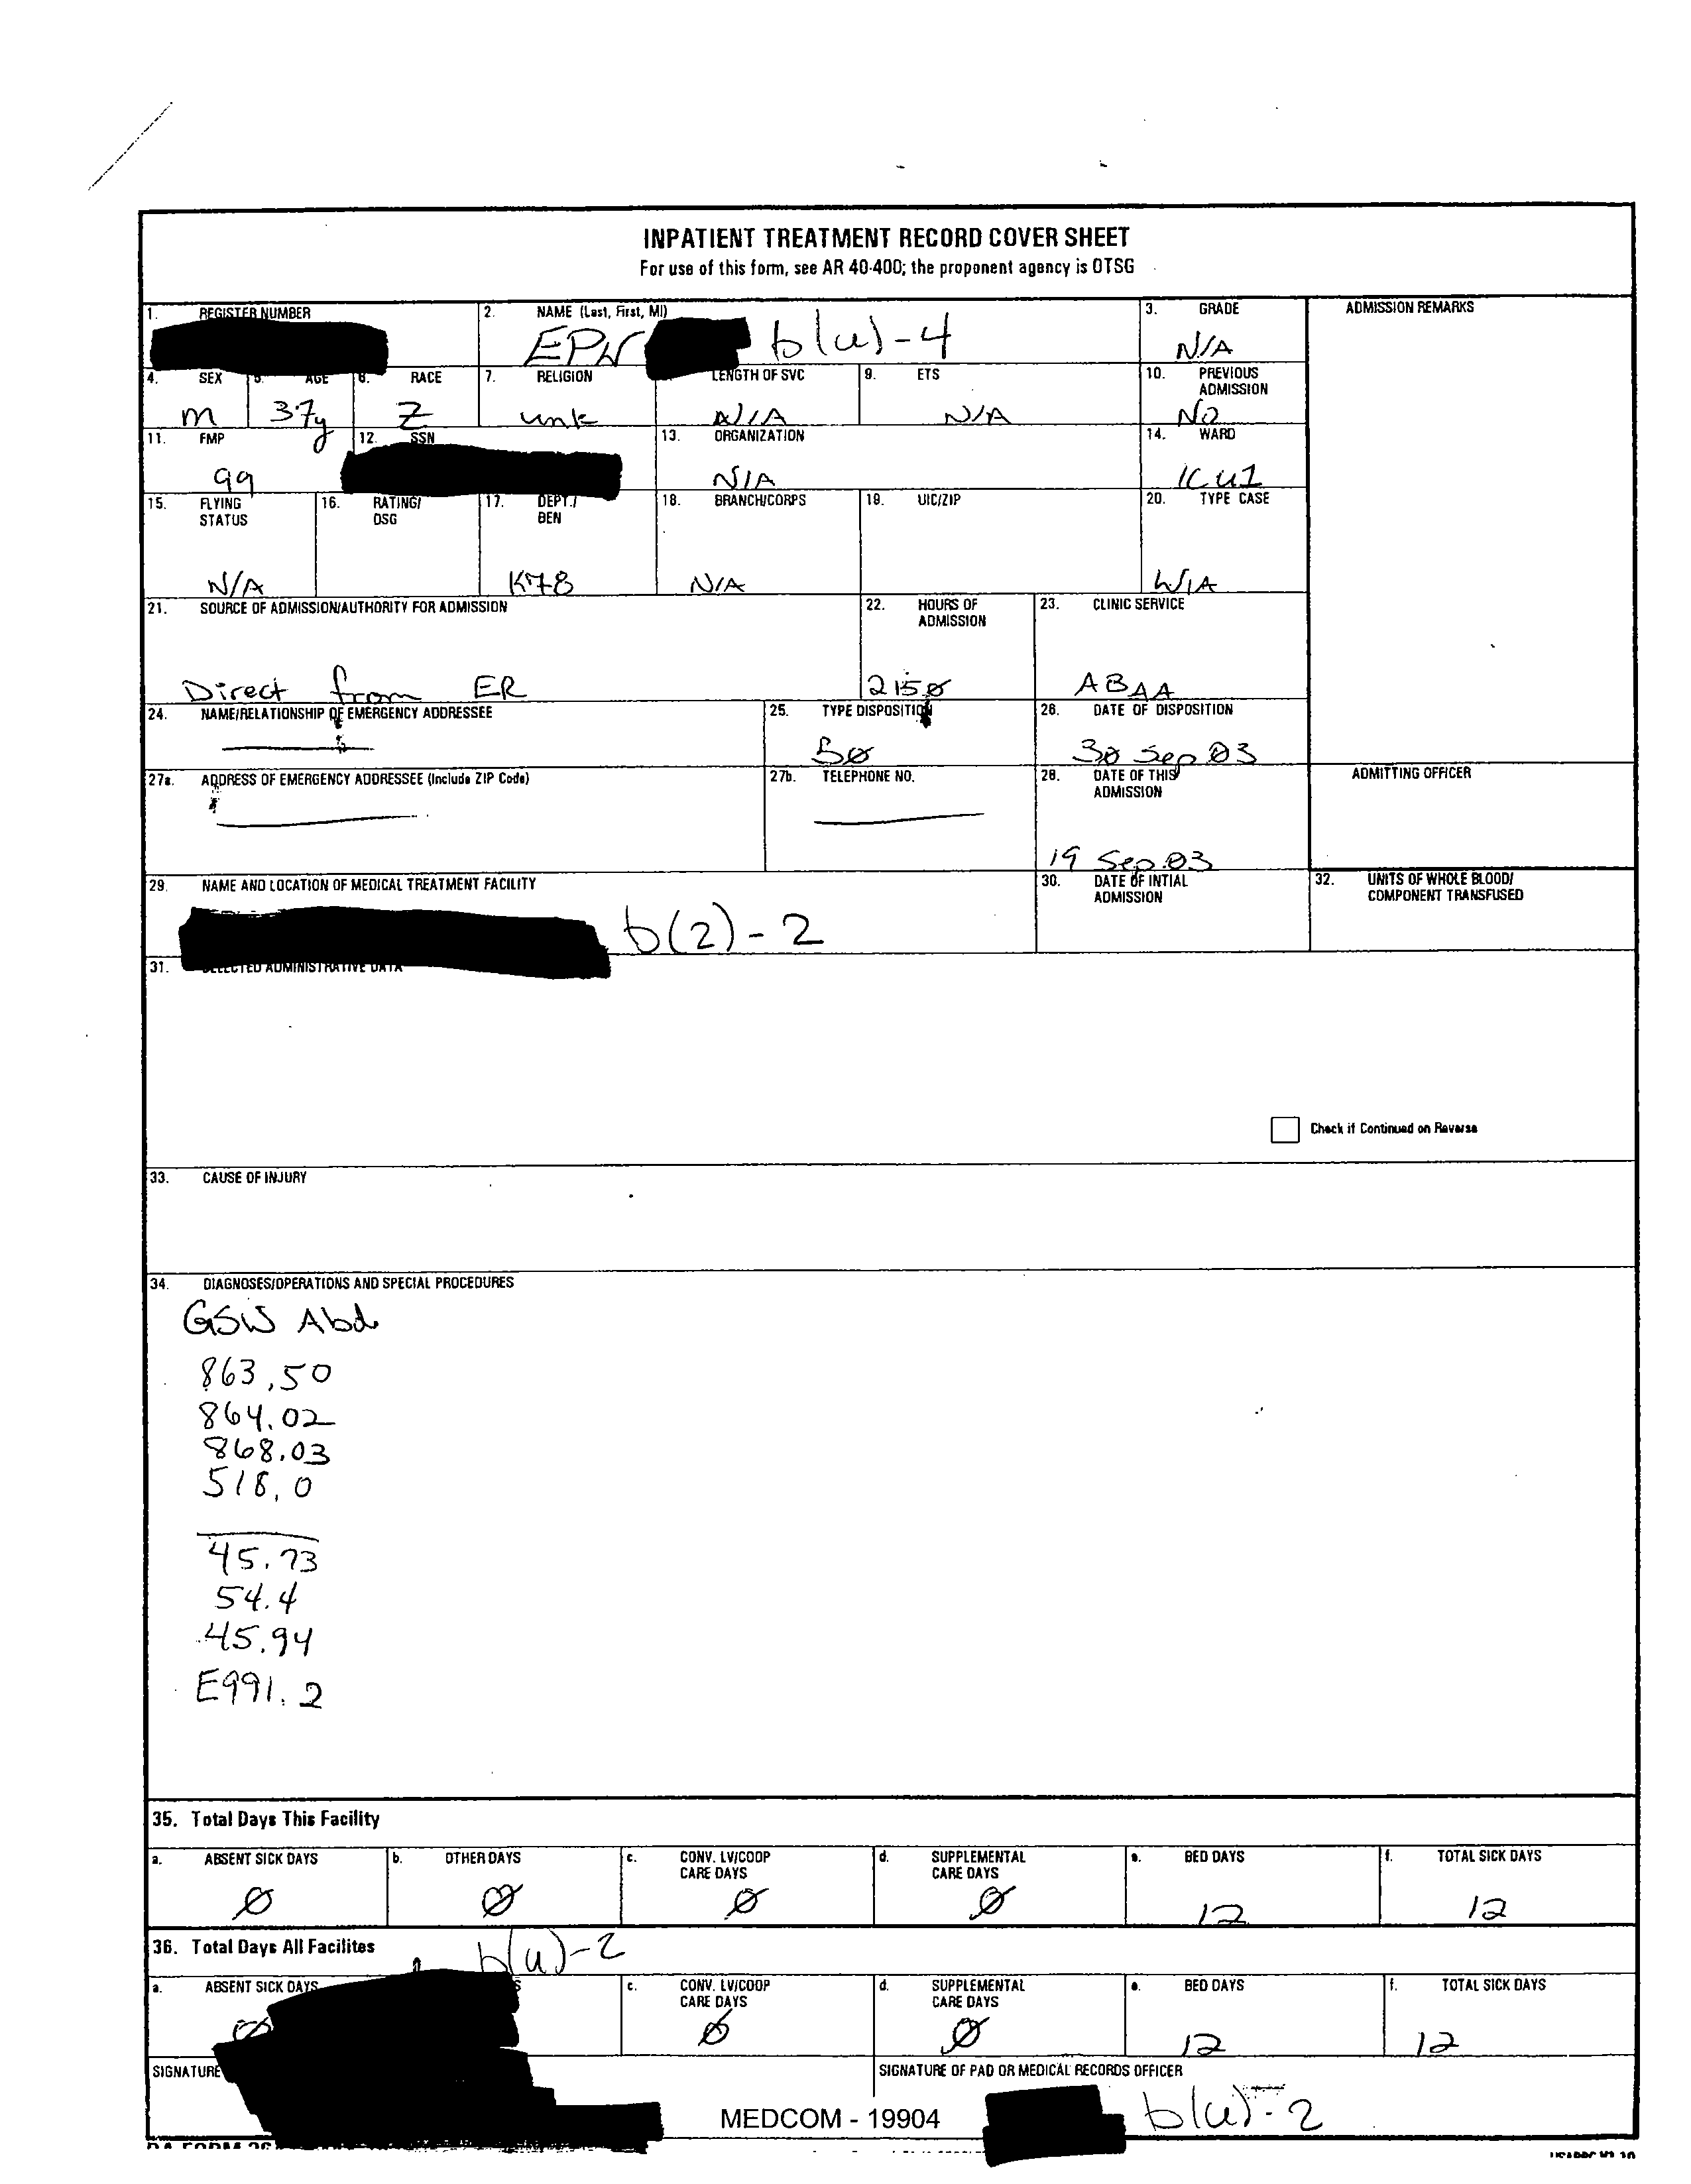 INPATIENT TREATMENT RECORD COVER SHEET
For use of this form, see AR 40-400; the proponent agency is OTSG
1. REGISTER NUMBER
2. NAME (Last, First, MI)
EPW b(6)-4
3. GRADE
N/A
ADMISSION REMARKS
4. SEX
M
5. AGE
37y
6. RACE
Z
7. RELIGION
unk
LENGTH OF SVC
N/A
9. ETS
N/A
10. PREVIOUS ADMISSION
NO
11. FMP
99
12. SSN
13. ORGANIZATION
N/A
14. WARD
ICU1
15. FLYING STATUS
N/A
16. RATING/ DSG
17. DEPT./ BEN
K78
18. BRANCH/CORPS
N/A
19. UIC/ZIP
20. TYPE CASE
WIA
21. SOURCE OF ADMISSION/AUTHORITY FOR ADMISSION
Direct from ER
22. HOURS OF ADMISSION
2150
23. CLINIC SERVICE
ABAA
24. NAME/RELATIONSHIP OF EMERGENCY ADDRESSEE
25. TYPE DISPOSITION
50
26. DATE OF DISPOSITION
30 Sep 03
27a. ADDRESS OF EMERGENCY ADDRESSEE (Include ZIP Code)
27b. TELEPHONE NO.
28. DATE OF THIS ADMISSION
19 Sep 03
ADMITTING OFFICER
29. NAME AND LOCATION OF MEDICAL TREATMENT FACILITY
b(2)-2
30. DATE OF INTIAL ADMISSION
32. UNITS OF WHOLE BLOOD/ COMPONENT TRANSFUSED
31. SELECTED ADMINISTRATIVE DATA
Check if Continued on Reverse
33. CAUSE OF INJURY
34. DIAGNOSES/OPERATIONS AND SPECIAL PROCEDURES
GSW Abd
863.50
864.02
868.03
518.0
45.73
54.4
45.94
E991.2
35. Total Days This Facility
a. ABSENT SICK DAYS
Ø
b. OTHER DAYS
Ø
c. CONV. LV/COOP CARE DAYS
Ø
d. SUPPLEMENTAL CARE DAYS
Ø
e. BED DAYS
12
f. TOTAL SICK DAYS
12
36. Total Days All Facilites
b(6)-2
a. ABSENT SICK DAYS
Ø
c. CONV. LV/COOP CARE DAYS
Ø
d. SUPPLEMENTAL CARE DAYS
Ø
e. BED DAYS
12
f. TOTAL SICK DAYS
12
SIGNATURE
SIGNATURE OF PAD OR MEDICAL RECORDS OFFICER
b(6)-2
MEDCOM - 19904